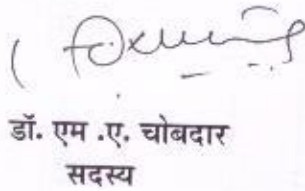 (
डॉ. एम .ए. चोबदार
सदस्य